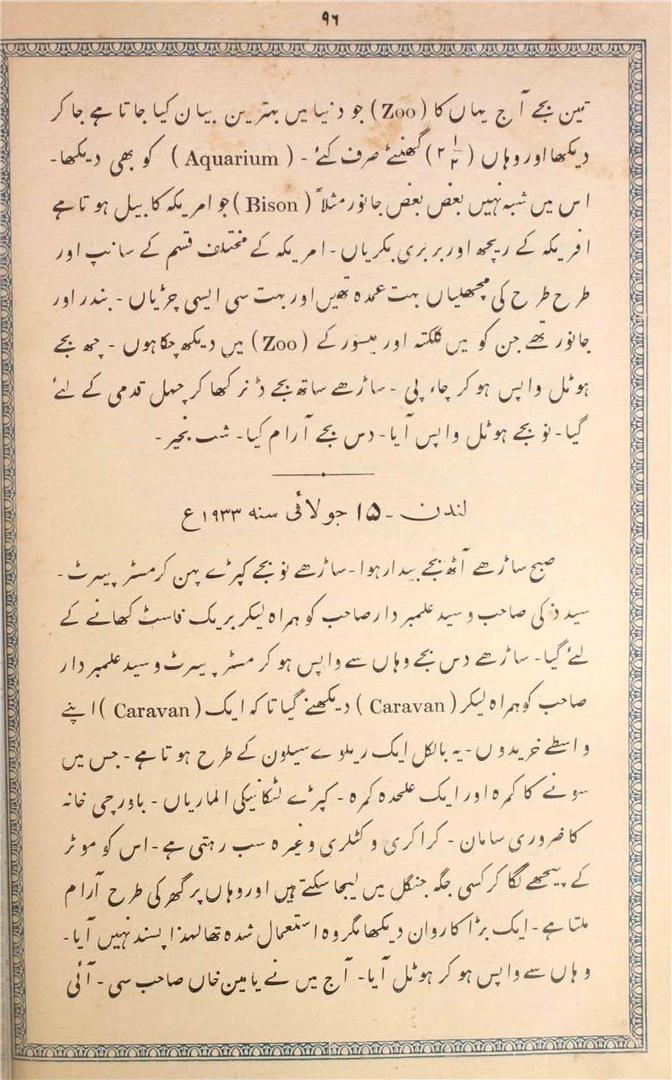 ۹۶
تین بجے آج یہاں کا (Zoo) جو دنیا میں بہترین بیان کیا جاتا ہے جا کر
دیکھا اور وہاں (۲ ۱/۲) گھنٹے صرف کئے - (Aquarium) کو بھی دیکھا-
اس میں شبہ نہیں بعض بعض جانور مثلاً (Bison) جو امریکہ کا بیل ہوتا ہے
افریکہ کے ریچھ اور بربری بکریاں - امریکہ کے مختلف قسم کے سانپ اور
طرح طرح کی مچھلیاں بہت عمدہ تھیں اور بہت سی ایسی چڑیاں - بندر اور
جانور تھے جن کو میں کلکتہ اور میسور کے (Zoo) میں دیکھ چکا ہوں - چھ بجے
ہوٹل واپس ہو کر چاء پی - ساڑھے سات بجے ڈنر کھا کر چہل قدمی کے لئے
گیا- نو بجے ہوٹل واپس آیا- دس بجے آرام کیا- شب بخیر -
لندن - ۱۵ جولائی سنہ ۱۹۳۳ع
صبح ساڑھے آٹھ بجے بیدار ہوا- ساڑھے نو بجے کپڑے پہن کر مسٹر پیرٹ -
سید ذکی صاحب و سید علمبردار صاحب کو ہمراہ لیکر بریک فاسٹ کھانے کے
لئے گیا- ساڑھے دس بجے وہاں سے واپس ہو کر مسٹر پیرٹ و سید علمبردار
صاحب کو ہمراہ لیکر (Caravan) دیکھنے گیا تا کہ ایک (Caravan) اپنے
واسطے خریدوں - یہ بالکل ایک ریلوے سیلون کے طرح ہوتا ہے - جس میں
سونے کا کمرہ اور ایک علحدہ کمرہ - کپڑے لٹکانیکی الماریاں - باورچی خانہ
کا ضروری سامان - کراکری و کٹلری وغیرہ سب رہتی ہے - اس کو موٹر
کے پیچھے لگا کر کسی جگہ جنگل میں لیجا سکتے ہیں اور وہاں پر گھر کی طرح آرام
ملتا ہے - ایک بڑا کاروان دیکھا مگر وہ استعمال شدہ تھا لہذا پسند نہیں آیا-
وہاں سے واپس ہو کر ہوٹل آیا- آج میں نے یامین خاں صاحب سی - آئی